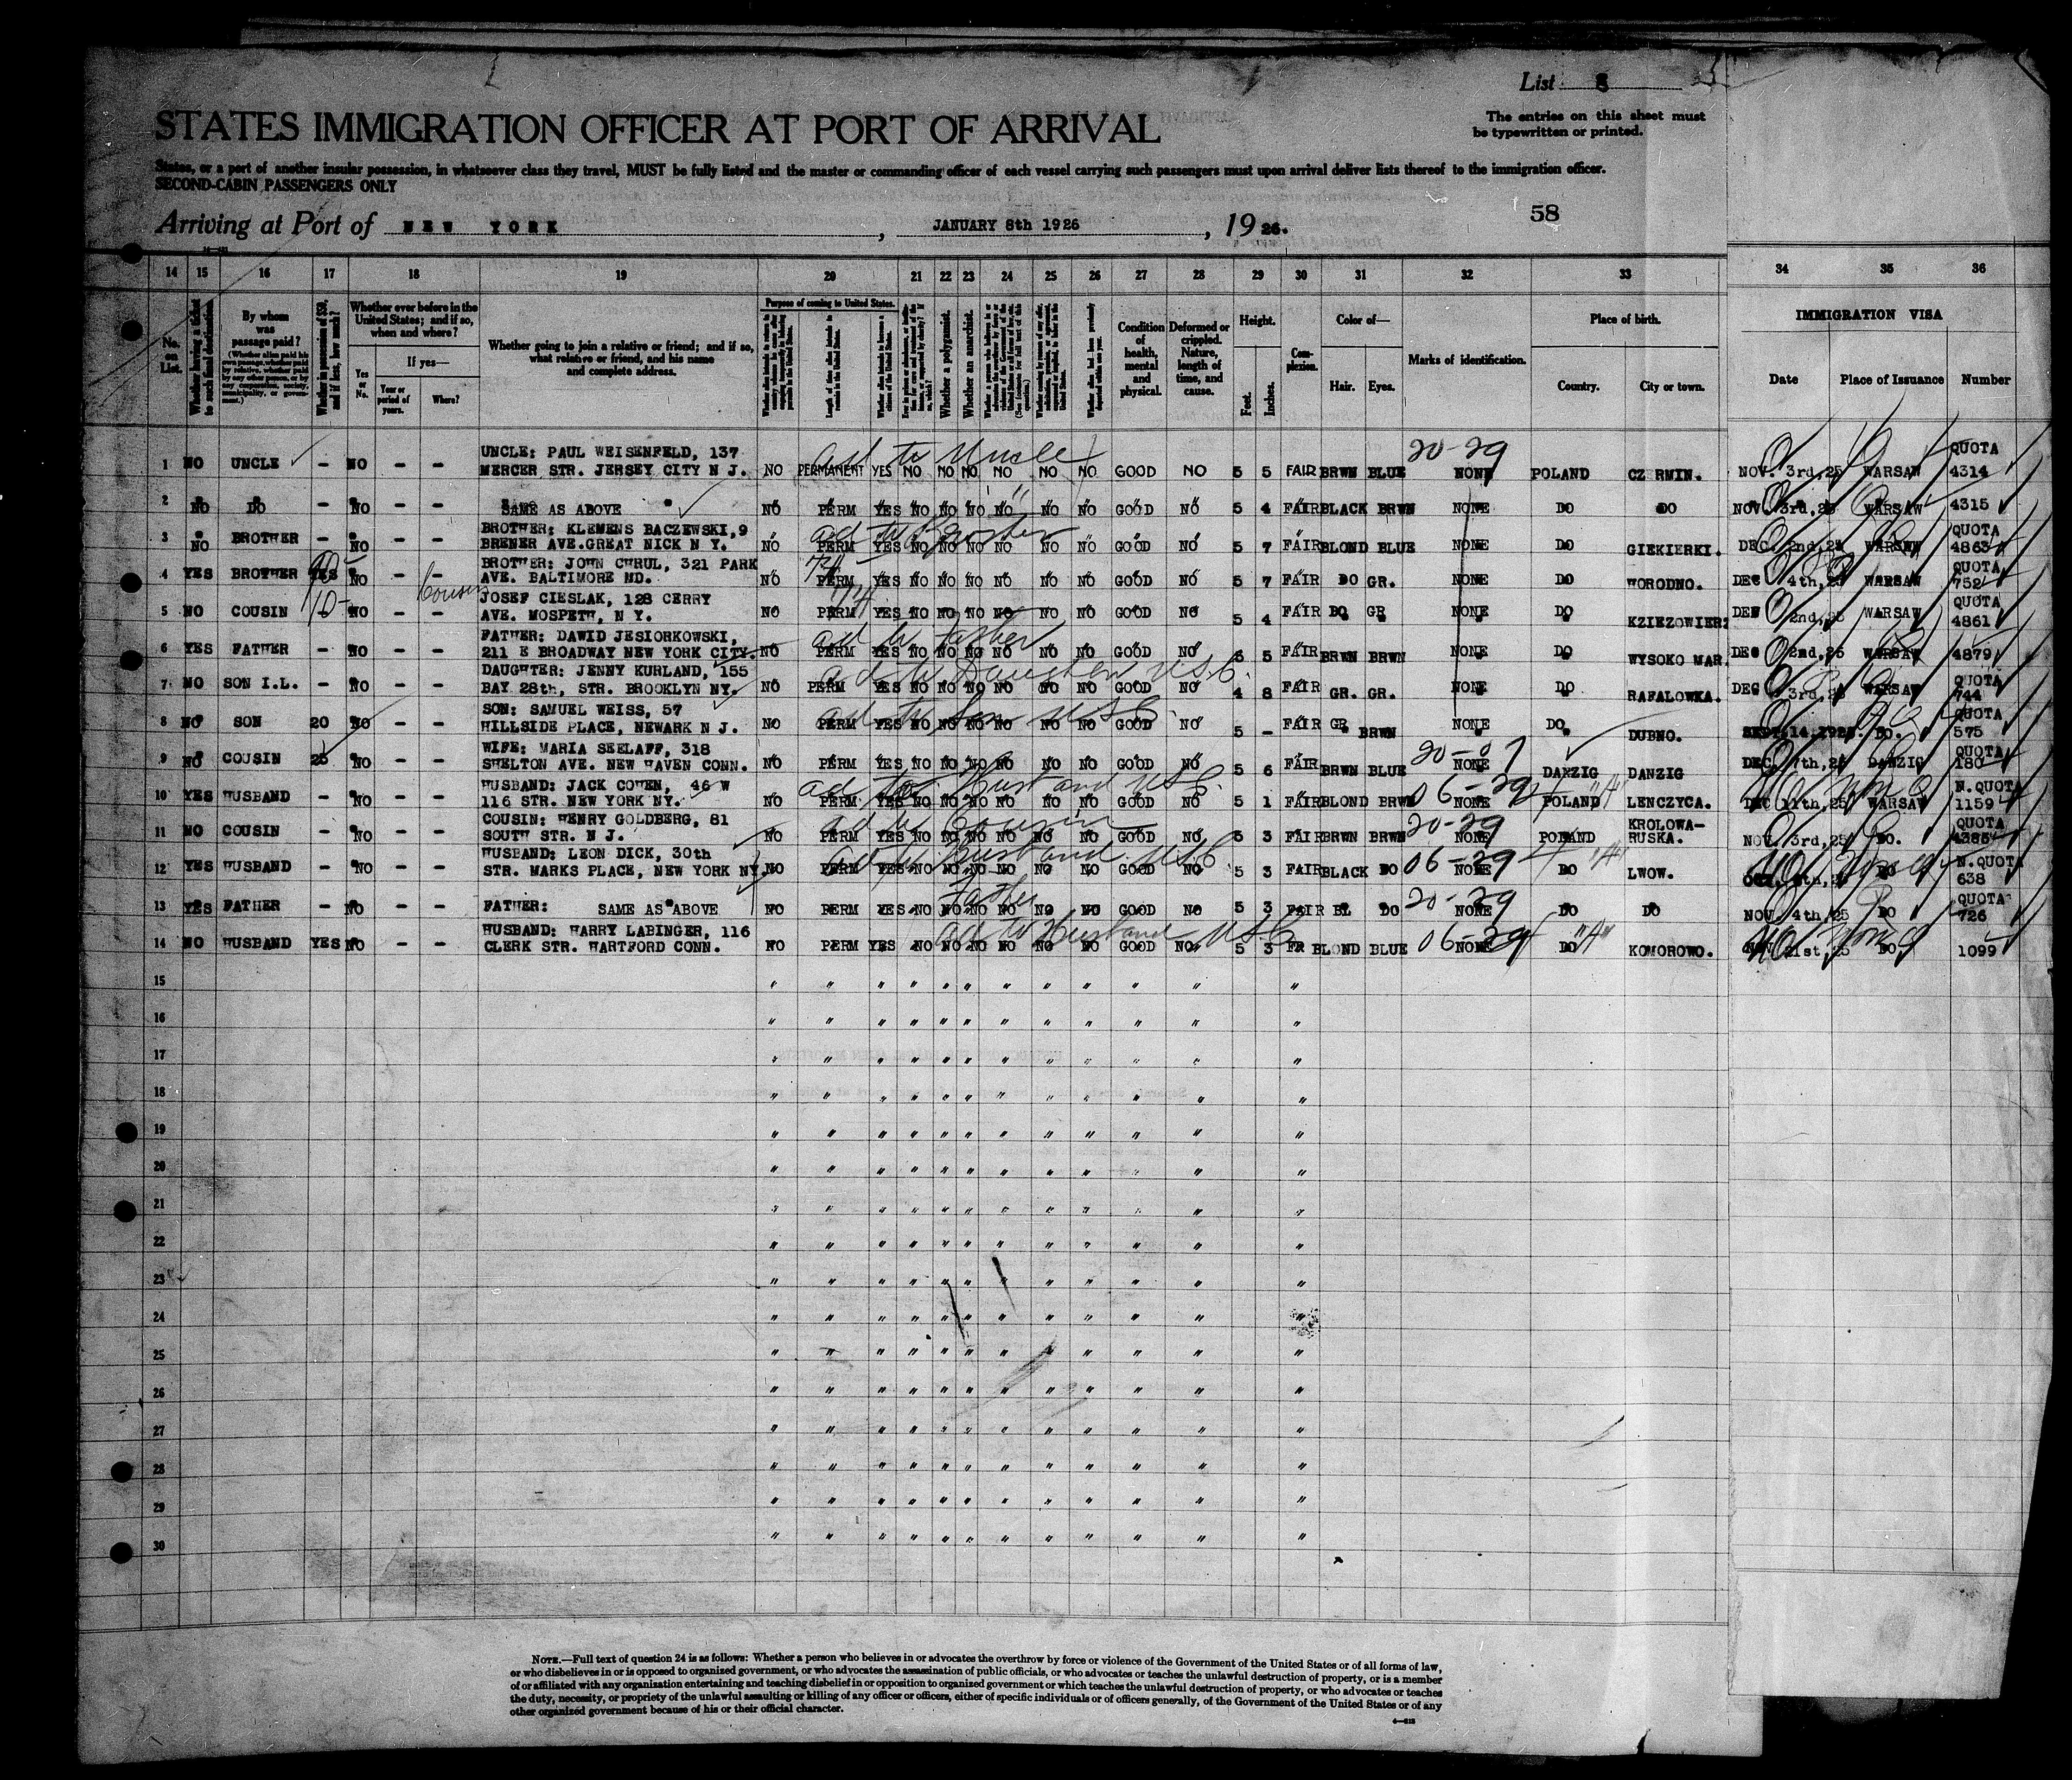 List 8
The entries on this sheet must
be typewritten or printed.
STATES IMMIGRATION OFFICER AT PORT OF ARRIVAL
States, or a part of another insular possession, in whatsoever class they travel, MUST be fully listed and the master or commanding officer of each vessel carrying such passengers must upon arrival deliver lists thereof to the immigration officer.
SECOND-CABIN PASSENGERS ONLY
58
Arriving at Port of NEW YORK, JANUARY 8th 1926, 1926.
14 15 16 17 18 19 20 21 22 23 24 25 26 27 28 29 30 31 32 33 34 35 36
No. on List.
Whether having a ticket to such final destination.
By whom was passage paid?
(Whether alien paid his own passage, whether paid by relative, whether paid by any other person, or by any corporation, society, municipality, or government.)
Whether in possession of $50, and if less, how much?
Whether ever before in the United States; and if so, when and where?
Yes or No.
If yes—
Year or period of years.
Where?
Whether going to join a relative or friend; and if so, what relative or friend, and his name and complete address.
Purpose of coming to United States.
Length of time alien intends to remain in the United States.
Whether alien intends to become a citizen of the United States.
Whether a polygamist.
Whether an anarchist.
Condition of health, mental and physical.
Deformed or crippled. Nature, length of time, and cause.
Height.
Feet. Inches.
Complexion.
Color of—
Hair. Eyes.
Marks of identification.
Place of birth.
Country. City or town.
IMMIGRATION VISA
Date Place of Issuance Number
ad to Uncle 20-29
1 NO UNCLE – NO – – UNCLE: PAUL WEISENFELD, 137 MERCER STR. JERSEY CITY N J. NO PERMANENT YES NO NO NO NO NO NO GOOD NO 5 5 FAIR BRWN BLUE NONE POLAND CZERMIN. NOV. 3rd,25 WARSAW QUOTA 4314
2 NO DO – NO – – SAME AS ABOVE NO PERM YES NO NO NO NO NO NO GOOD NO 5 4 FAIR BLACK BRWN NONE DO DO NOV. 3rd,25 WARSAW 4315
3 NO BROTHER – NO – – BROTHER: KLEMENS BACZEWSKI,9 BRENER AVE.GREAT NICK N Y. NO PERM YES NO NO NO NO NO NO GOOD NO 5 7 FAIR BLOND BLUE NONE DO GIEKIERKI. DEC. 2nd,25 WARSAW QUOTA 4863
4 YES BROTHER YES NO – – BROTHER: JOHN CHRUL, 321 PARK AVE. BALTIMORE MD. NO PERM YES NO NO NO NO NO NO GOOD NO 5 7 FAIR DO GR. NONE DO WORODNO. DEC 4th,25 WARSAW QUOTA 752
Cousin
5 NO COUSIN 10- NO – – JOSEF CIESLAK, 128 CERRY AVE. MOSPETH, N Y. NO PERM YES NO NO NO NO NO NO GOOD NO 5 4 FAIR DO GR NONE DO KZIEZOWIER: DEC 2nd,25 WARSAW QUOTA 4861
ad to father
6 YES FATHER – NO – – FATHER: DAWID JESIORKOWSKI, 211 E BROADWAY NEW YORK CITY. NO PERM YES NO NO NO NO NO NO GOOD NO 5 5 FAIR BRWN BRWN NONE DO WYSOKO MAR. DEC 2nd,25 WARSAW 4879
ad to Daughter U.S.C.
7 NO SON I.L. – NO – – DAUGHTER: JENNY KURLAND, 155 BAY 28th, STR. BROOKLYN NY. NO PERM YES NO NO NO NO NO NO GOOD NO 4 8 FAIR GR. GR. NONE DO RAFALOWKA. DEC 3rd,25 WARSAW QUOTA 744
ad to Son U.S.C.
8 NO SON 20 NO – – SON: SAMUEL WEISS, 57 HILLSIDE PLACE, NEWARK N J. NO PERM YES NO NO NO NO NO NO GOOD NO 5 – FAIR GR BRWN NONE DO. DUBNO. SEPT.14,1925. DO. QUOTA 575
9 NO COUSIN 25 NO – – WIFE: MARIA SEELAFF, 318 SHELTON AVE. NEW HAVEN CONN. NO PERM YES NO NO NO NO NO NO GOOD NO 5 6 FAIR BRWN BLUE NONE DANZIG DANZIG DEC. 7th,25 DANZIG QUOTA 180
ad to Husband U.S.C. 06-29
10 YES HUSBAND – NO – – HUSBAND: JACK COHEN, 46 W 116 STR. NEW YORK NY. NO PERM YES NO NO NO NO NO NO GOOD NO 5 1 FAIR BLOND BRWN NONE POLAND "A" LENCZYCA. DEC 11th,25 WARSAW N.QUOTA 1159
ad to Cousin 20-29
11 NO COUSIN – NO – – COUSIN: HENRY GOLDBERG, 81 SOUTH STR. N J. NO PERM YES NO NO NO NO NO NO GOOD NO 5 3 FAIR BRWN BRWN NONE POLAND KROLOWA-RUSKA. NOV. 3rd,25 DO. QUOTA 4385
ad to Husband U.S.C 06-29
12 YES HUSBAND – NO – – HUSBAND: LEON DICK, 30th STR. MARKS PLACE, NEW YORK NY NO PERM YES NO NO NO NO NO NO GOOD NO 5 3 FAIR BLACK DO NONE DO "A" LWOW. DO N.QUOTA 638
Father 20-29
13 YES FATHER – NO – – FATHER: SAME AS ABOVE NO PERM YES NO NO NO NO NO NO GOOD NO 5 3 FAIR BL DO NONE DO DO NOV. 4th,25 DO QUOTA 726
ad to Husband U.S.C 06-29
14 NO HUSBAND YES NO – – HUSBAND: HARRY LABINGER, 116 CLERK STR. HARTFORD CONN. NO PERM YES NO NO NO NO NO NO GOOD NO. 5 3 FR BLOND BLUE NONE DO "A" KOMOROWO. 21st,25 DO, 1099
15
16
17
18
19
20
21
22
23
24
25
26
27
28
29
30
NOTE.—Full text of question 24 is as follows: Whether a person who believes in or advocates the overthrow by force or violence of the Government of the United States or of all forms of law,
or who disbelieves in or is opposed to organized government, or who advocates the assassination of public officials, or who advocates or teaches the unlawful destruction of property, or is a member
of or affiliated with any organization entertaining and teaching disbelief in or opposition to organized government or which teaches the unlawful destruction of property, or who advocates or teaches
the duty, necessity, or propriety of the unlawful assaulting or killing of any officer or officers, either of specific individuals or of officers generally, of the Government of the United States or of any
other organized government because of his or their official character.